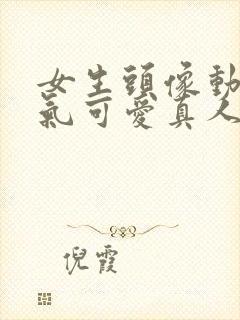 女生頭像動
氣可愛真人
倪霞